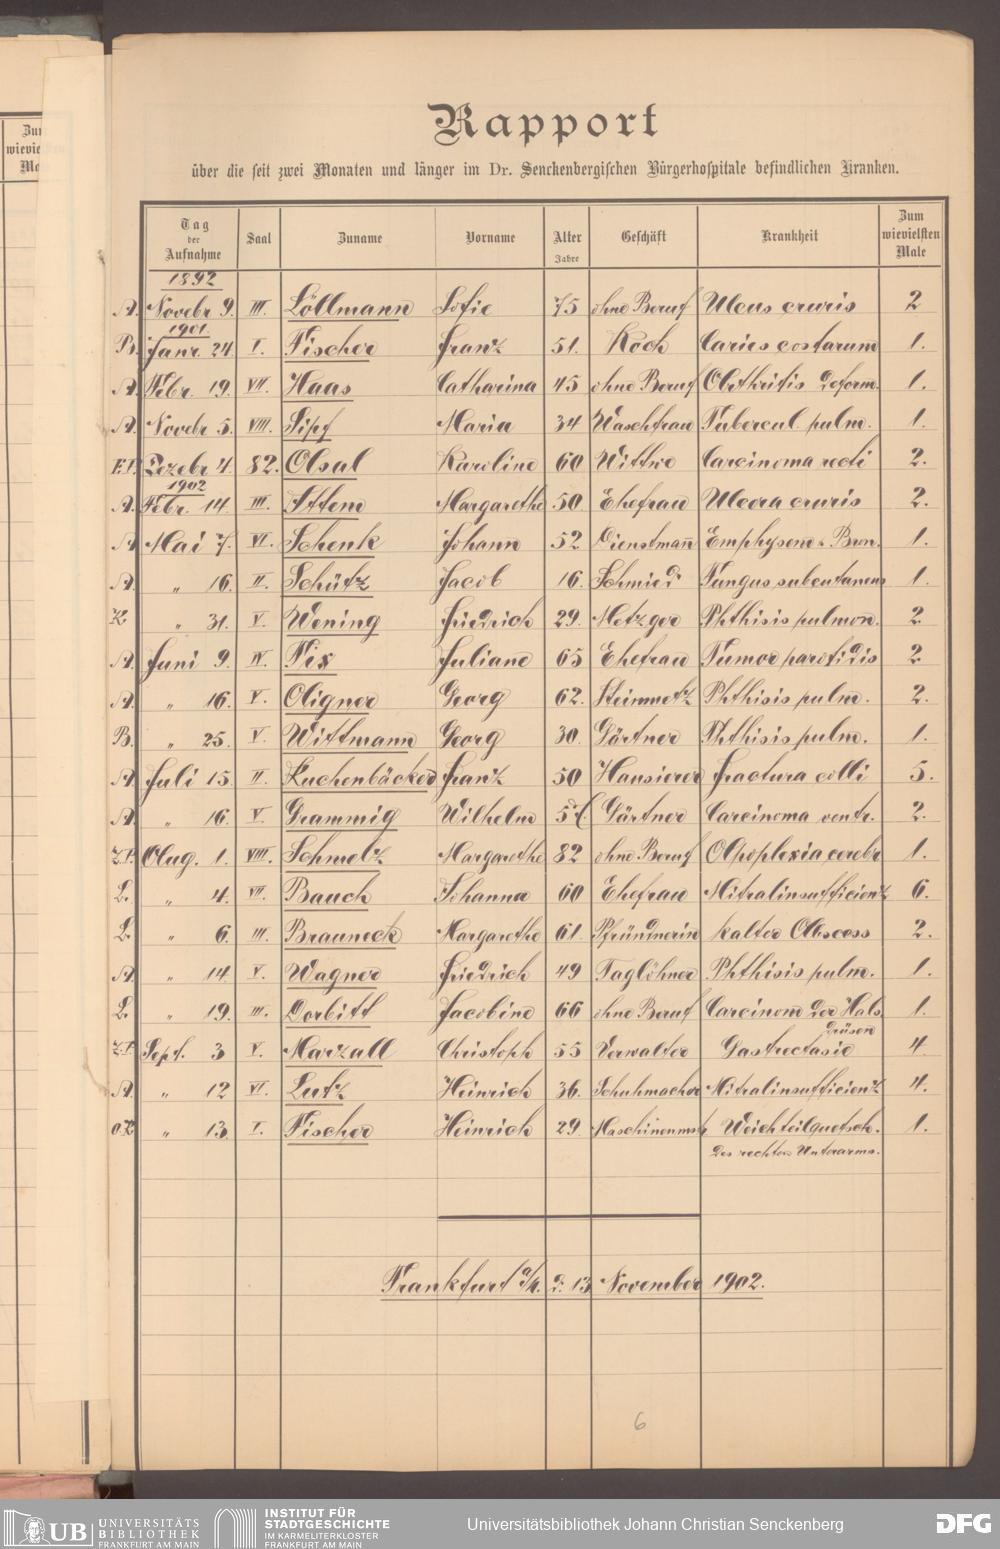 Zum
wieviel
Ma
Rapport
über die seit zwei Monaten und länger im Dr. Senckenbergischen Bürgerhospitale befindlichen Kranken.
Tag der Aufnahme Saal Zuname Vorname Alter Jahre Geschäft Krankheit Zum wievielsten Male
1892
A. Novebr 9. III. Löllmann Sofie 75 ohne Beruf Ulcus cruris 2
1901.
B. Janr. 24. I. Fischer Franz 51. Koch Caries costarum 1.
A. Febr. 19. VII. Haas Catharina 45 ohne Beruf Arthritis deform. 1.
A. Novebr 5. VIII. Sipf Maria 34 Waschfrau Tubercul. pulm. 1.
E.I. Dezebr 4. 82. Olsal Karoline 60 Wittwe Carcinoma recti 2.
1902
A. Febr. 14. III. Ittem Margarethe 50 Ehefrau Ulcera cruris 2.
A. Mai 7. VI. Schenk Johann 52 Dienstmañ Emphysem & Bron. 1.
A. " 16. II. Schütz Jacob 16. Schmied Fungus subcutaneus 1.
K " 31. V. Wening Friedrich 29. Metzger Phthisis pulmon. 2
A. Juni 9. IV. Fix Juliane 65 Ehefrau Tumor parotidis 2
A. " 16. V. Oligner Georg 62. Steinmetz Phthisis pulm. 2.
B. " 25. V. Wittmann Georg 30. Gärtner Phthisis pulm. 1.
A. Juli 15. II. Kuchenbäcker Franz 50 Hausierer Fractura colli 5.
A. " 16. V. Grammig Wilhelm Gärtner Carcinoma ventr. 2.
Z.I. Aug. 1. VIII. Schmelz Margarethe 82 ohne Beruf Apoplexia cerebr 1.
L. " 4. VII. Bauch Johanna 60 Ehefrau Mitralinsufficienz 6.
L. " 6. III. Brauneck Margarethe 61. Pfründnerin kalter Abscess 2.
A. " 14. V. Wagner Friedrich 49 Taglöhner Phthisis pulm. 1.
L. " 19. III. Dorbitt Jacobine 66 ohne Beruf Carcinom der Hals 1.
drüsen
Z.I. Sept. 3 V. Marzall Christoph 55 Verwalter Gastrectasie 4.
A. " 12 VI. Lutz Heinrich 36. Schuhmacher Mitralinsufficienz 4.
" 13. I. Fischer Heinrich 29. Maschinenmstr Weichteilquetsch. 1.
des rechten Unterarms.
Frankfurt a/M. d. 13 November 1902.
6
UB UNIVERSITÄTS
BIBLIOTHEK
FRANKFURT AM MAIN
INSTITUT FÜR
STADTGESCHICHTE
IM KARMELITERKLOSTER
FRANKFURT AM MAIN
Universitätsbibliothek Johann Christian Senckenberg
DFG